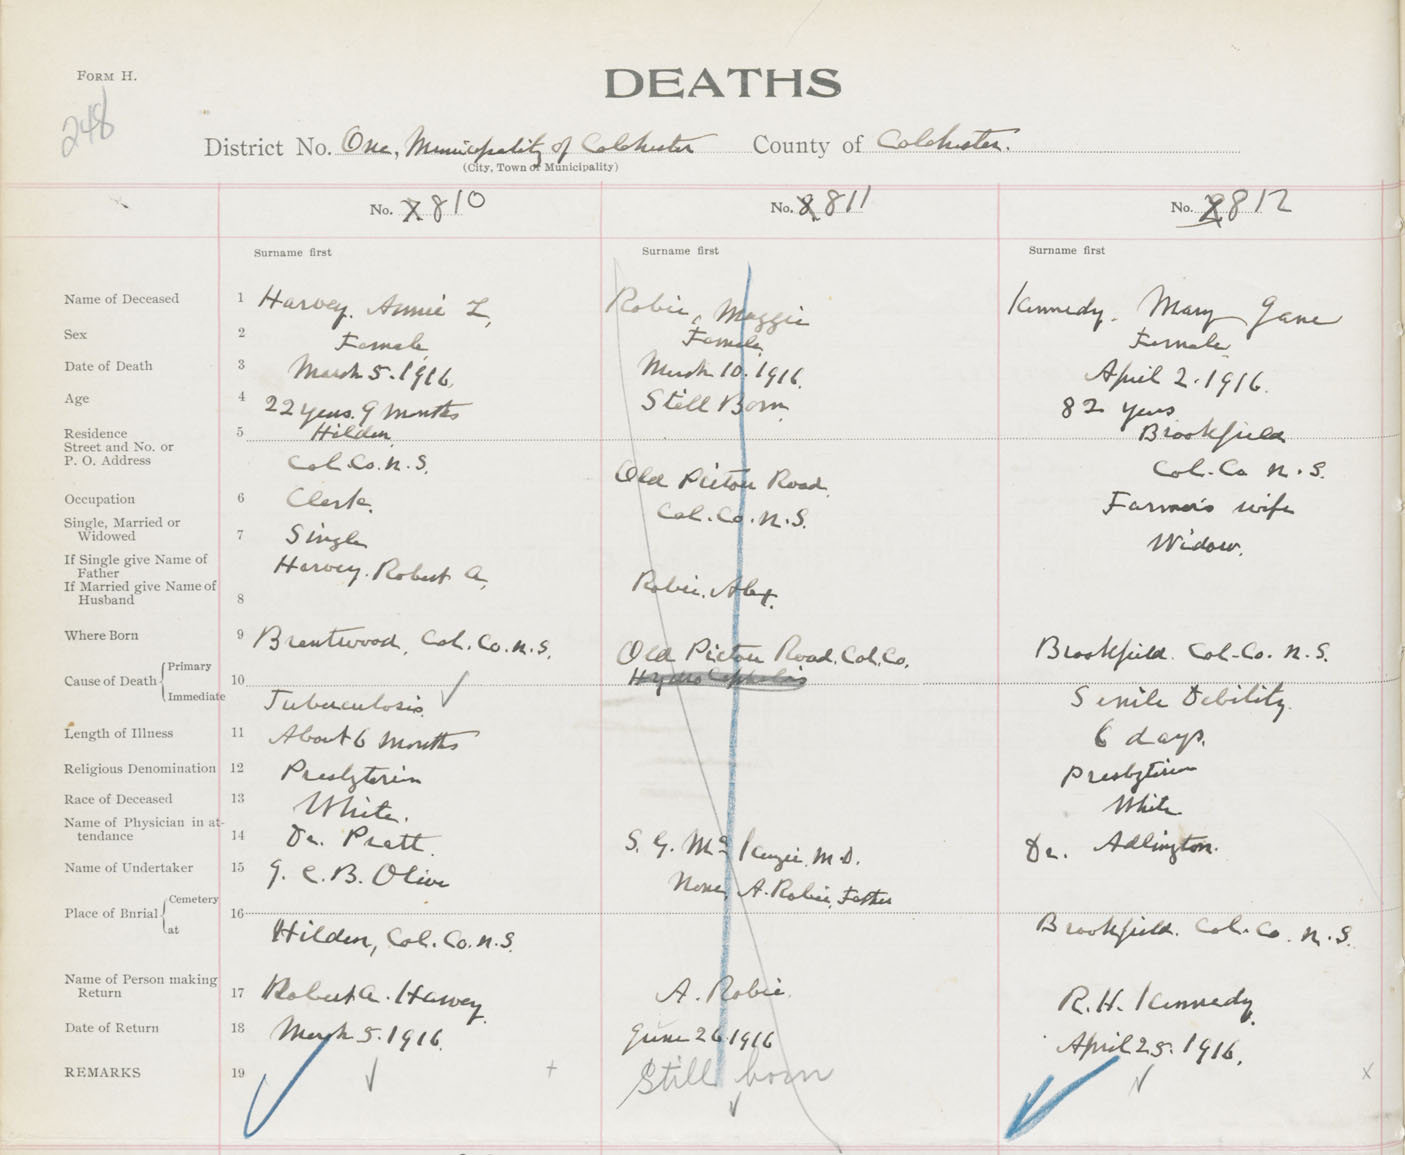 FORM H.
248
DEATHS
District No. One, Municipality of Colchester County of Colchester.
(City, Town or Municipality)
No. 810 No. 811 No. 812
Surname first Surname first Surname first
Name of Deceased 1 Harvey. Annie L, Robie, Maggie Kennedy. Mary Jane
Sex 2 Female Female Female
Date of Death 3 March 5. 1916. March 10. 1916. April 2. 1916.
Age 4 22 years. 9 months Still Born 82 years
Residence 5 Hilden, Brookfield
Street and No. or
P. O. Address Col. Co. N. S. Old Pictou Road, Col. Co. N. S.
Col. Co. N. S.
Occupation 6 Clerk. Farmer's wife
Single, Married or
Widowed 7 Single Widow.
If Single give Name of
Father Harvey. Robert A, Robie. Alex.
If Married give Name of
Husband 8
Where Born 9 Brentwood, Col. Co. N. S. Old Pictou Road. Col. Co. Brookfield. Col. Co. N. S.
Cause of Death Primary 10 Hydrocephalus
Immediate Tuberculosis Senile Debility.
Length of Illness 11 About 6 months 6 days.
Religious Denomination 12 Presbyterin Presbyterin
Race of Deceased 13 White. White
Name of Physician in at-
tendance 14 Dr. Pratt. S. G. McKenzie, M. D. Dr. Adlington.
Name of Undertaker 15 G. C. B. Olive None, A. Robie, Father
Place of Burial Cemetery 16
at Hilden, Col. Co. N. S. Brookfield. Col. Co. N. S.
Name of Person making
Return 17 Robert A. Harvey. A. Robie. R. H. Kennedy.
Date of Return 18 March 5. 1916. June 26. 1916 April 25. 1916.
REMARKS 19 Still born